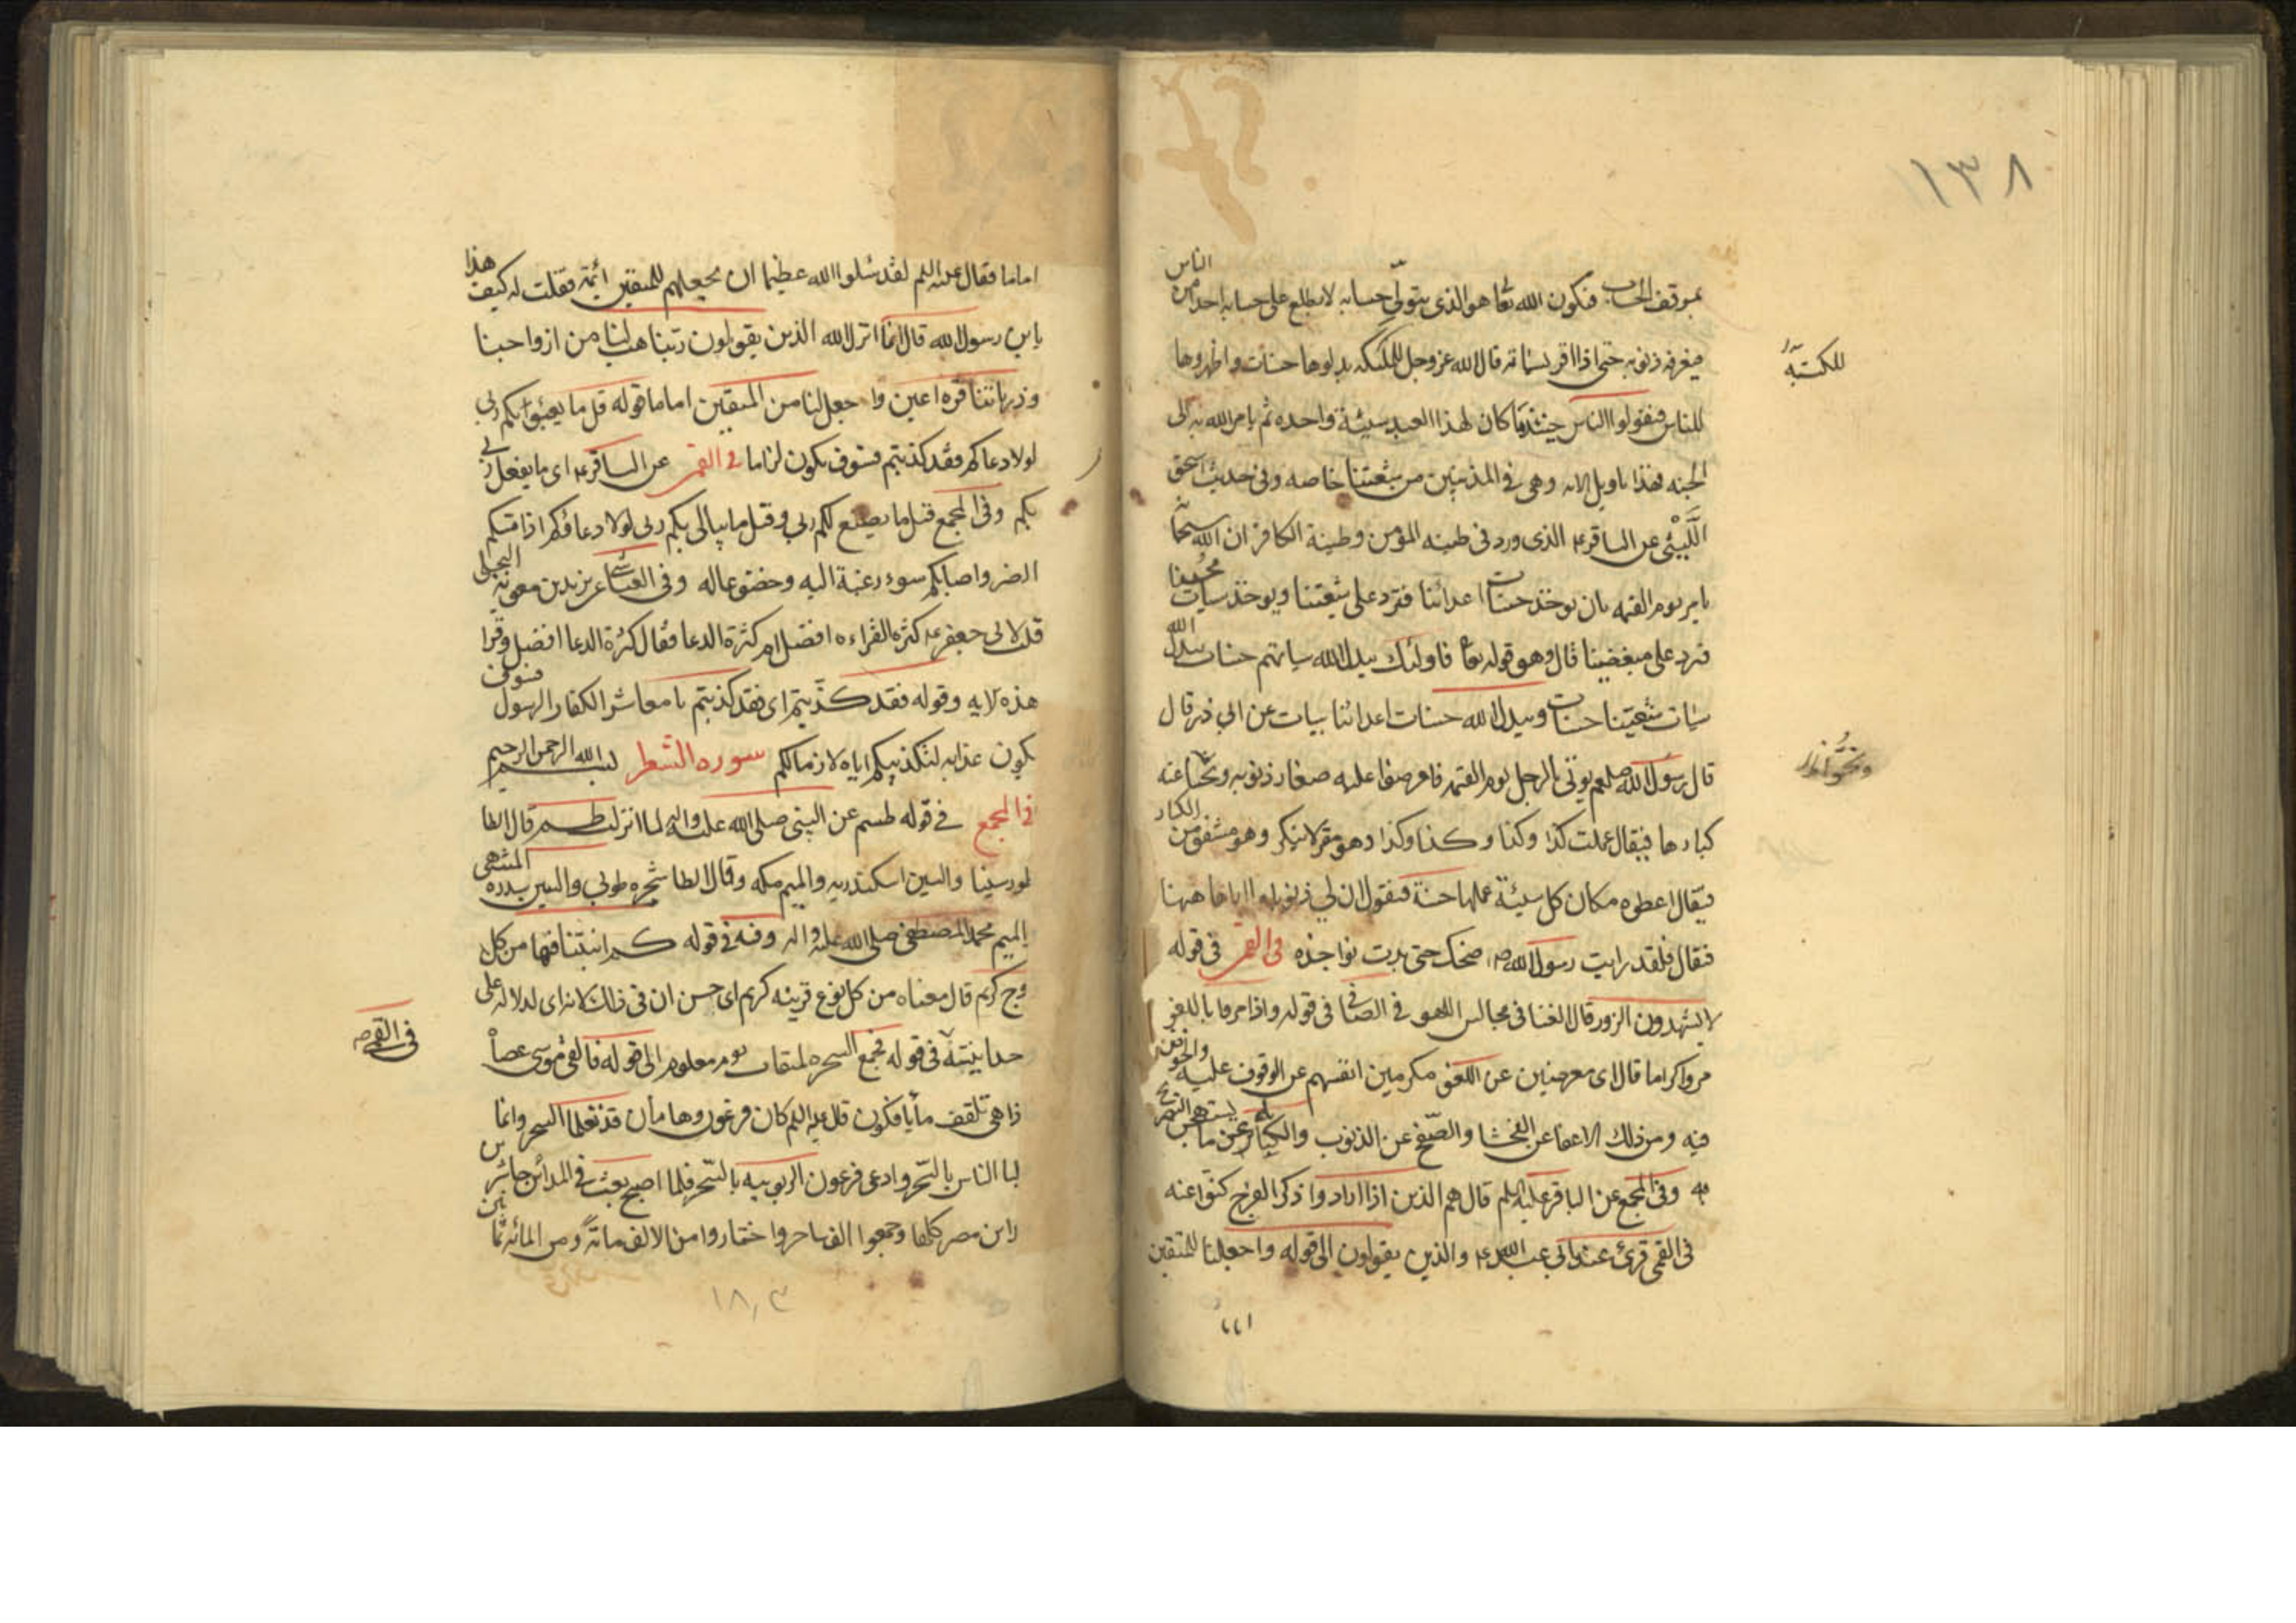 ١٣٨
بموقف الحساب فيكون الله تعا هو الذى يتولى حسابه لا يطلع على حسابه احدا من الناس
فيعرفه ذنوبه حتى اذا اقر بسياته قال الله عز وجل للملئكه بدلوها حسنات و اظهروها
للكتبة
للناس فيقولوا الناس حينئذ ما كان لهذا العبد سيئة واحده ثم يامر الله به الى
الجنه فهذا تاويل الايه وهى فى المذنبين من شيعتنا خاصه وفى حديث اسحق
اللَّيْثى عن الباقر ع الذى ورد فى طينه المؤمن وطينة الكافر ان الله سبحانه
يامر يوم القيمه بان يوخذ حسنات اعدائنا فترد على شيعتنا ويوخذ سيات محبينا
فترد على مبغضينا قال وهو قوله تعا فاولئك يبدل الله سياتهم حسنات يبدل الله
سيات شيعتنا حسنات ويبدل الله حسنات اعدائنا سيات عن ابي ذر قال
قال رسول الله صلعم يوتى بالرجل يوم القيمه فاعرضوا عليه صغار ذنوبه ونحيا عنه
كبارها فيقال عملت كذا وكذا وكذا وكذا وهو مقر لا ينكر وهو مشفق من الكبار
فيقال اعطوه مكان كل سيئة عملها حسنة فيقول ان لي ذنوبا ما اراها ههنا
فقال فلقد رايت رسول الله ص ضحك حتى بدت نواجذه فى القمى فى قوله
لا يشهدون الزور قال الغنا فى مجالس اللهو فى الصافى فى قوله واذا مروا باللغو
مروا كراما قال اى معرضين عن اللغو مكرمين انفسهم عن الوقوف عليه والخوض
فيه ومن ذلك الاغضا عن الفحشا والصفح عن الذنوب والكناية عن ما يستهجن التصريح
به وفى المجمع عن الباقر عليه السلم قال هم الذين اذا ارادوا ذكر الفرج كنوا عنه
فى القمى قرئ عند ابى عبد الله ع والذين يقولون الى قوله واجعلنا للمتقين
اماما فقال عليه السلم لقد سئلوا الله عظيما ان يجعلهم للمتقين ائمة فقلت له كيف هذا
يابن رسول الله قال انما انزل الله الذين يقولون ربنا هب لنا من ازواجنا
وذرياتنا قرة اعين واجعل لنا من المتقين اماما قوله قل ما يعبؤا بكم ربى
لولا دعاكم فقد كذبتم فسوف يكون لزاما فى القمى عن الباقر ع اى ما يفعل ربى
بكم وفى المجمع قيل ما يصنع لكم ربى وقيل ما يبالى بكم ربى لولا دعاؤكم اذا مسكم
الضر واصابكم سوء رغبة اليه وخضوعا له وفى العياشى عن يزيد بن معوية البجلى
قلت لابى جعفر ع كثرة القراءه افضل ام كثرة الدعا فقال كثرة الدعا افضل وقرا
هذه الايه وقوله فقد كذبتم اى فقد كذبتم يا معاشر الكفار الرسول فسوف
يكون عذابه لتكذيبكم اياه لازما لكم سوره الشعرا بسم الله الرحمن الرحيم
فى المجمع فى قوله طسم عن النبى صلى الله عليه واله لما انزلت طسم قال الطا
طور سينا والسين اسكندريه والميم مكه وقال الطا شجره طوبى والسين سدره المنتهى
الميم محمد المصطفى صلى الله عليه واله وفيه فى قوله كم انبتنا فيها من كل
زوج كريم قال معناه من كل نوع قرينه كريم اى حسن ان فى ذلك لاية اى لدلالة على
وحدانيته فى قوله فجمع السحره لميقات يوم معلوم الى قوله فالقى موسى عصاه
فى القمى
فاذا هى تلقف ما يافكون قال عليه السلم كان فرعون وهامان قد تعلما السحر وانما
غلبا الناس بالسحر وادعى فرعون الربوبيه بالسحر فلما اصبح بعث فى المدائن حاشرين
مداين مصر كلها وجمعوا الف ساحر واختاروا من الالف ماىة ومن المائه ثمانين